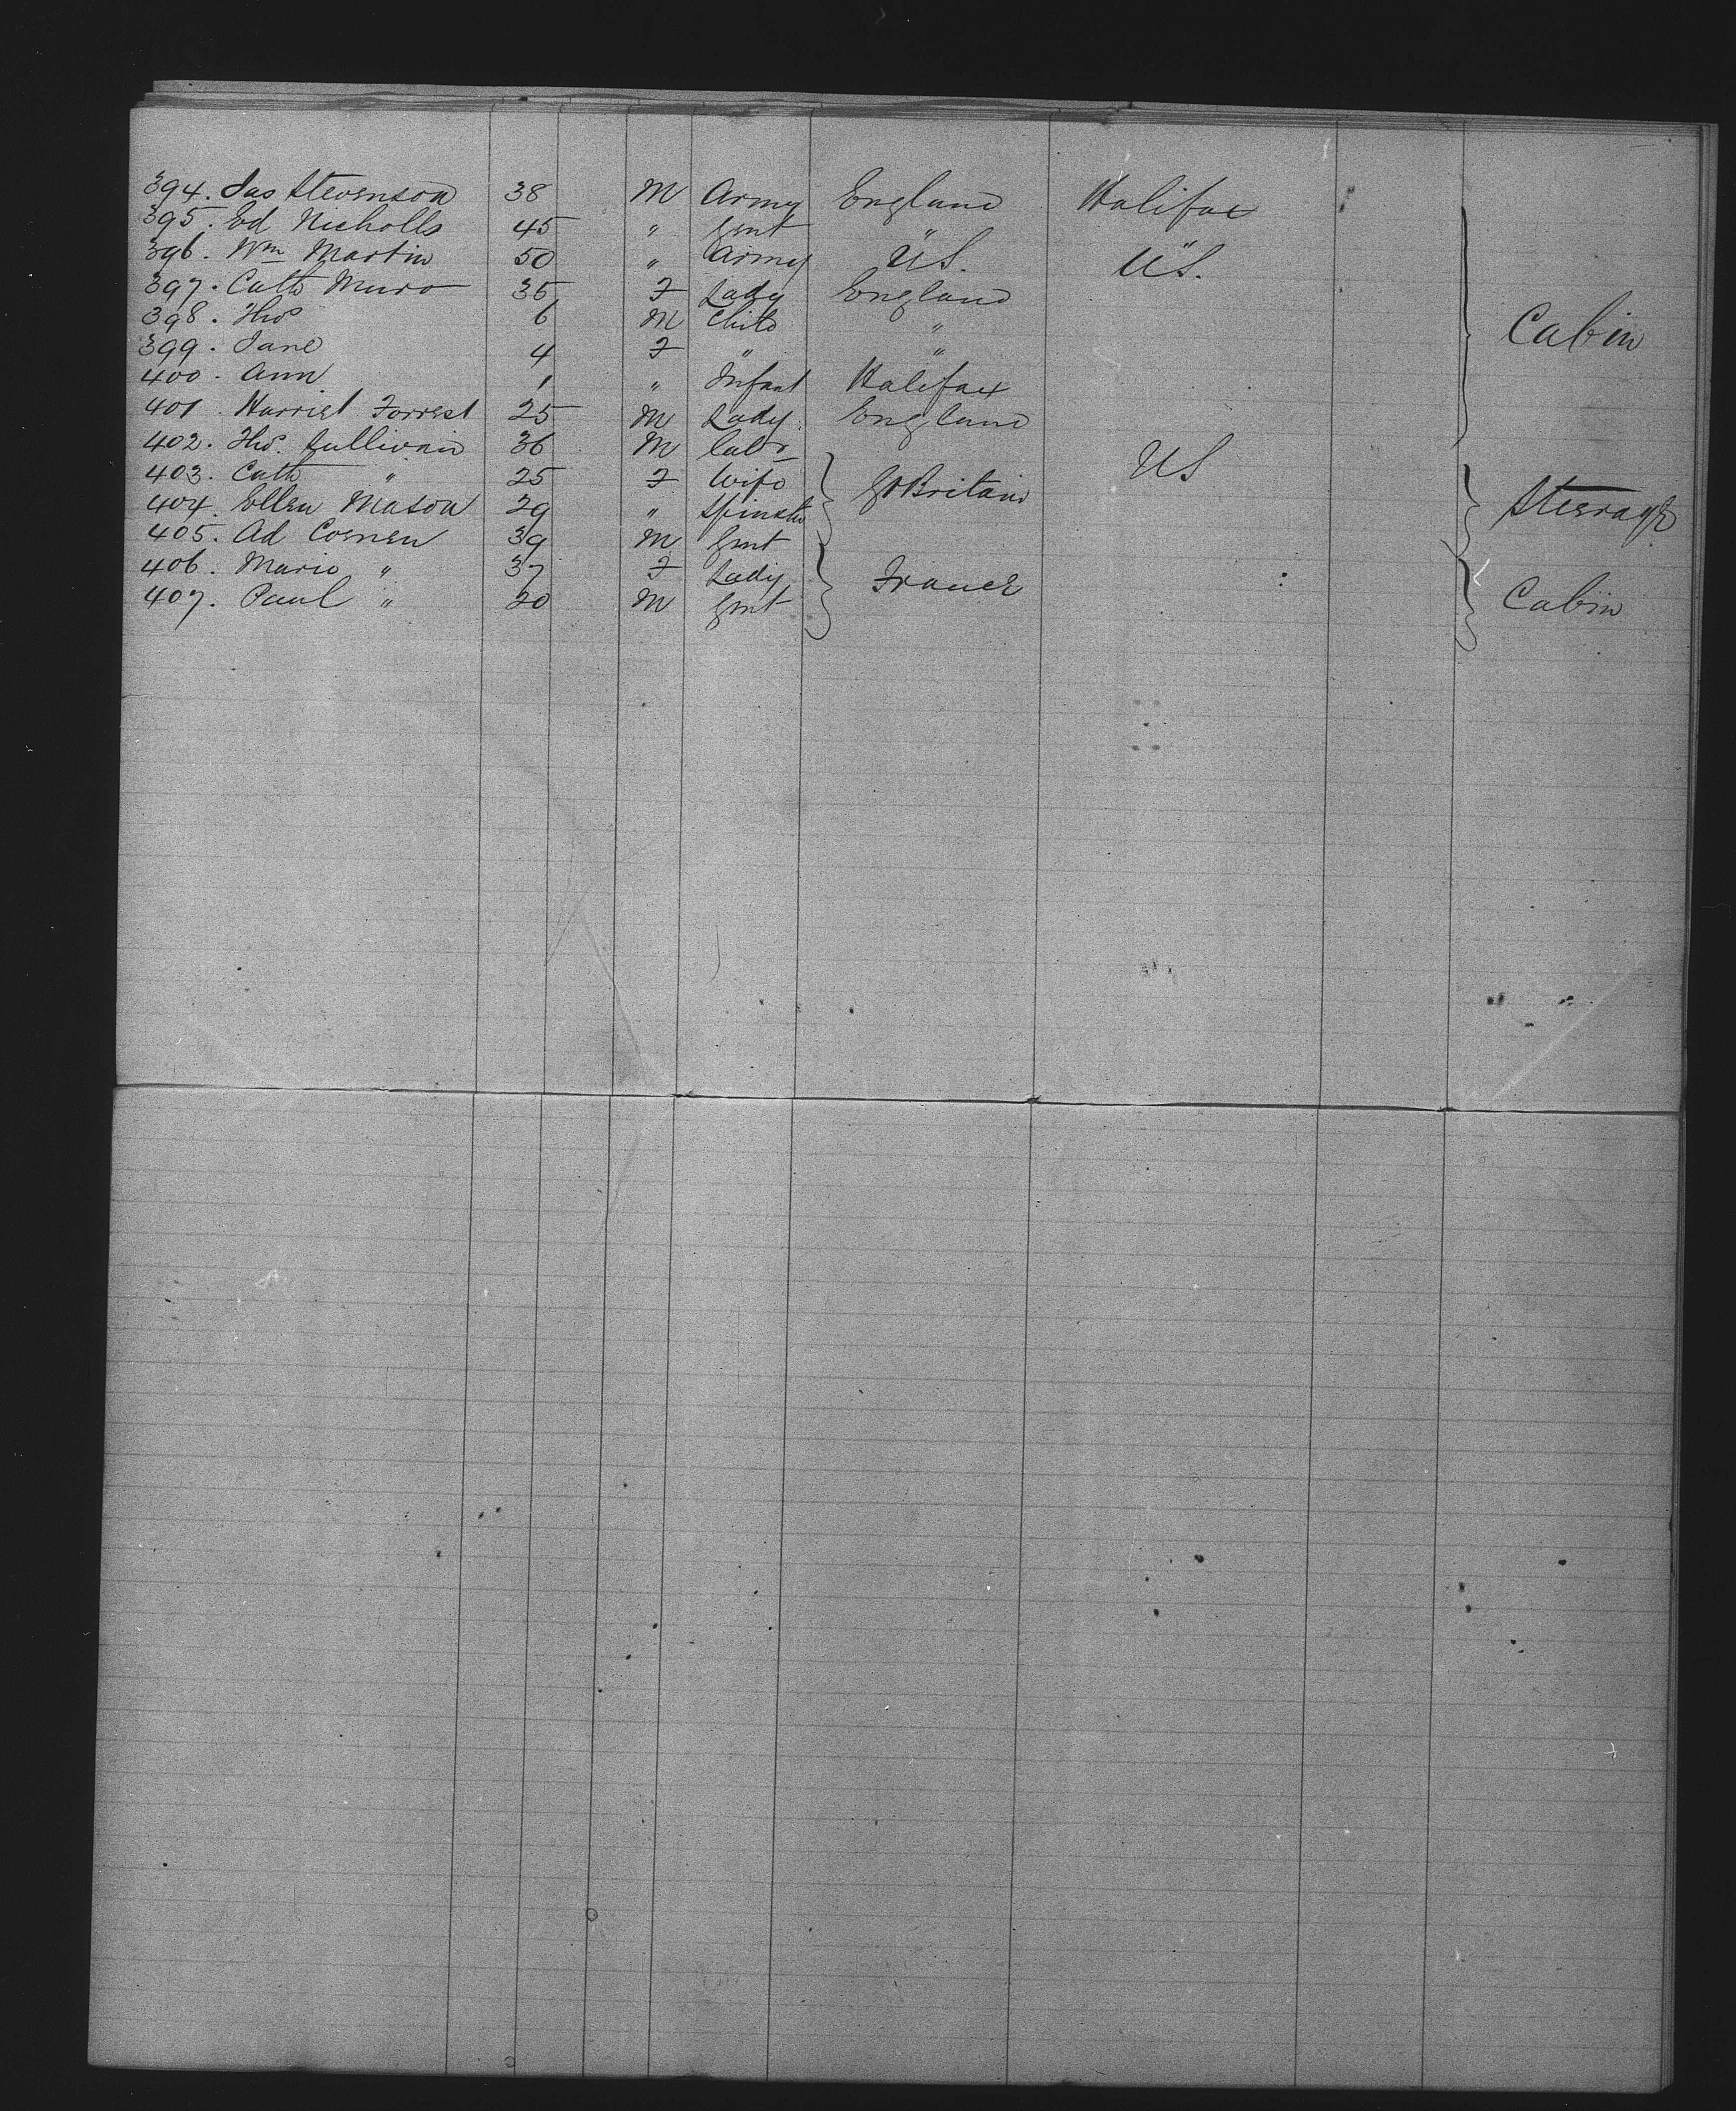 394. Jas Stevenson 38 M Army England Halifax
395. Ed Nicholls 45 " Gent " "
396. Wm Martin 50 " Army U.S. U.S.
397. Cath Muro 35 F Lady England
398. Thos 6 M Child " Cabin
399. Jane 4 F " "
400. Ann 1 " Infant Halifax
401. Harriet Forrest 25 M Lady England
402. Thos. Sullivan 36 M Labr US
403. Cath " 25 F Wife Gt Britain
404. Ellen Mason 29 " Spinster Steerage
405. Ad 39 M Gent
406. Marie " 37 F Lady France
407. Paul " 20 M Gent Cabin